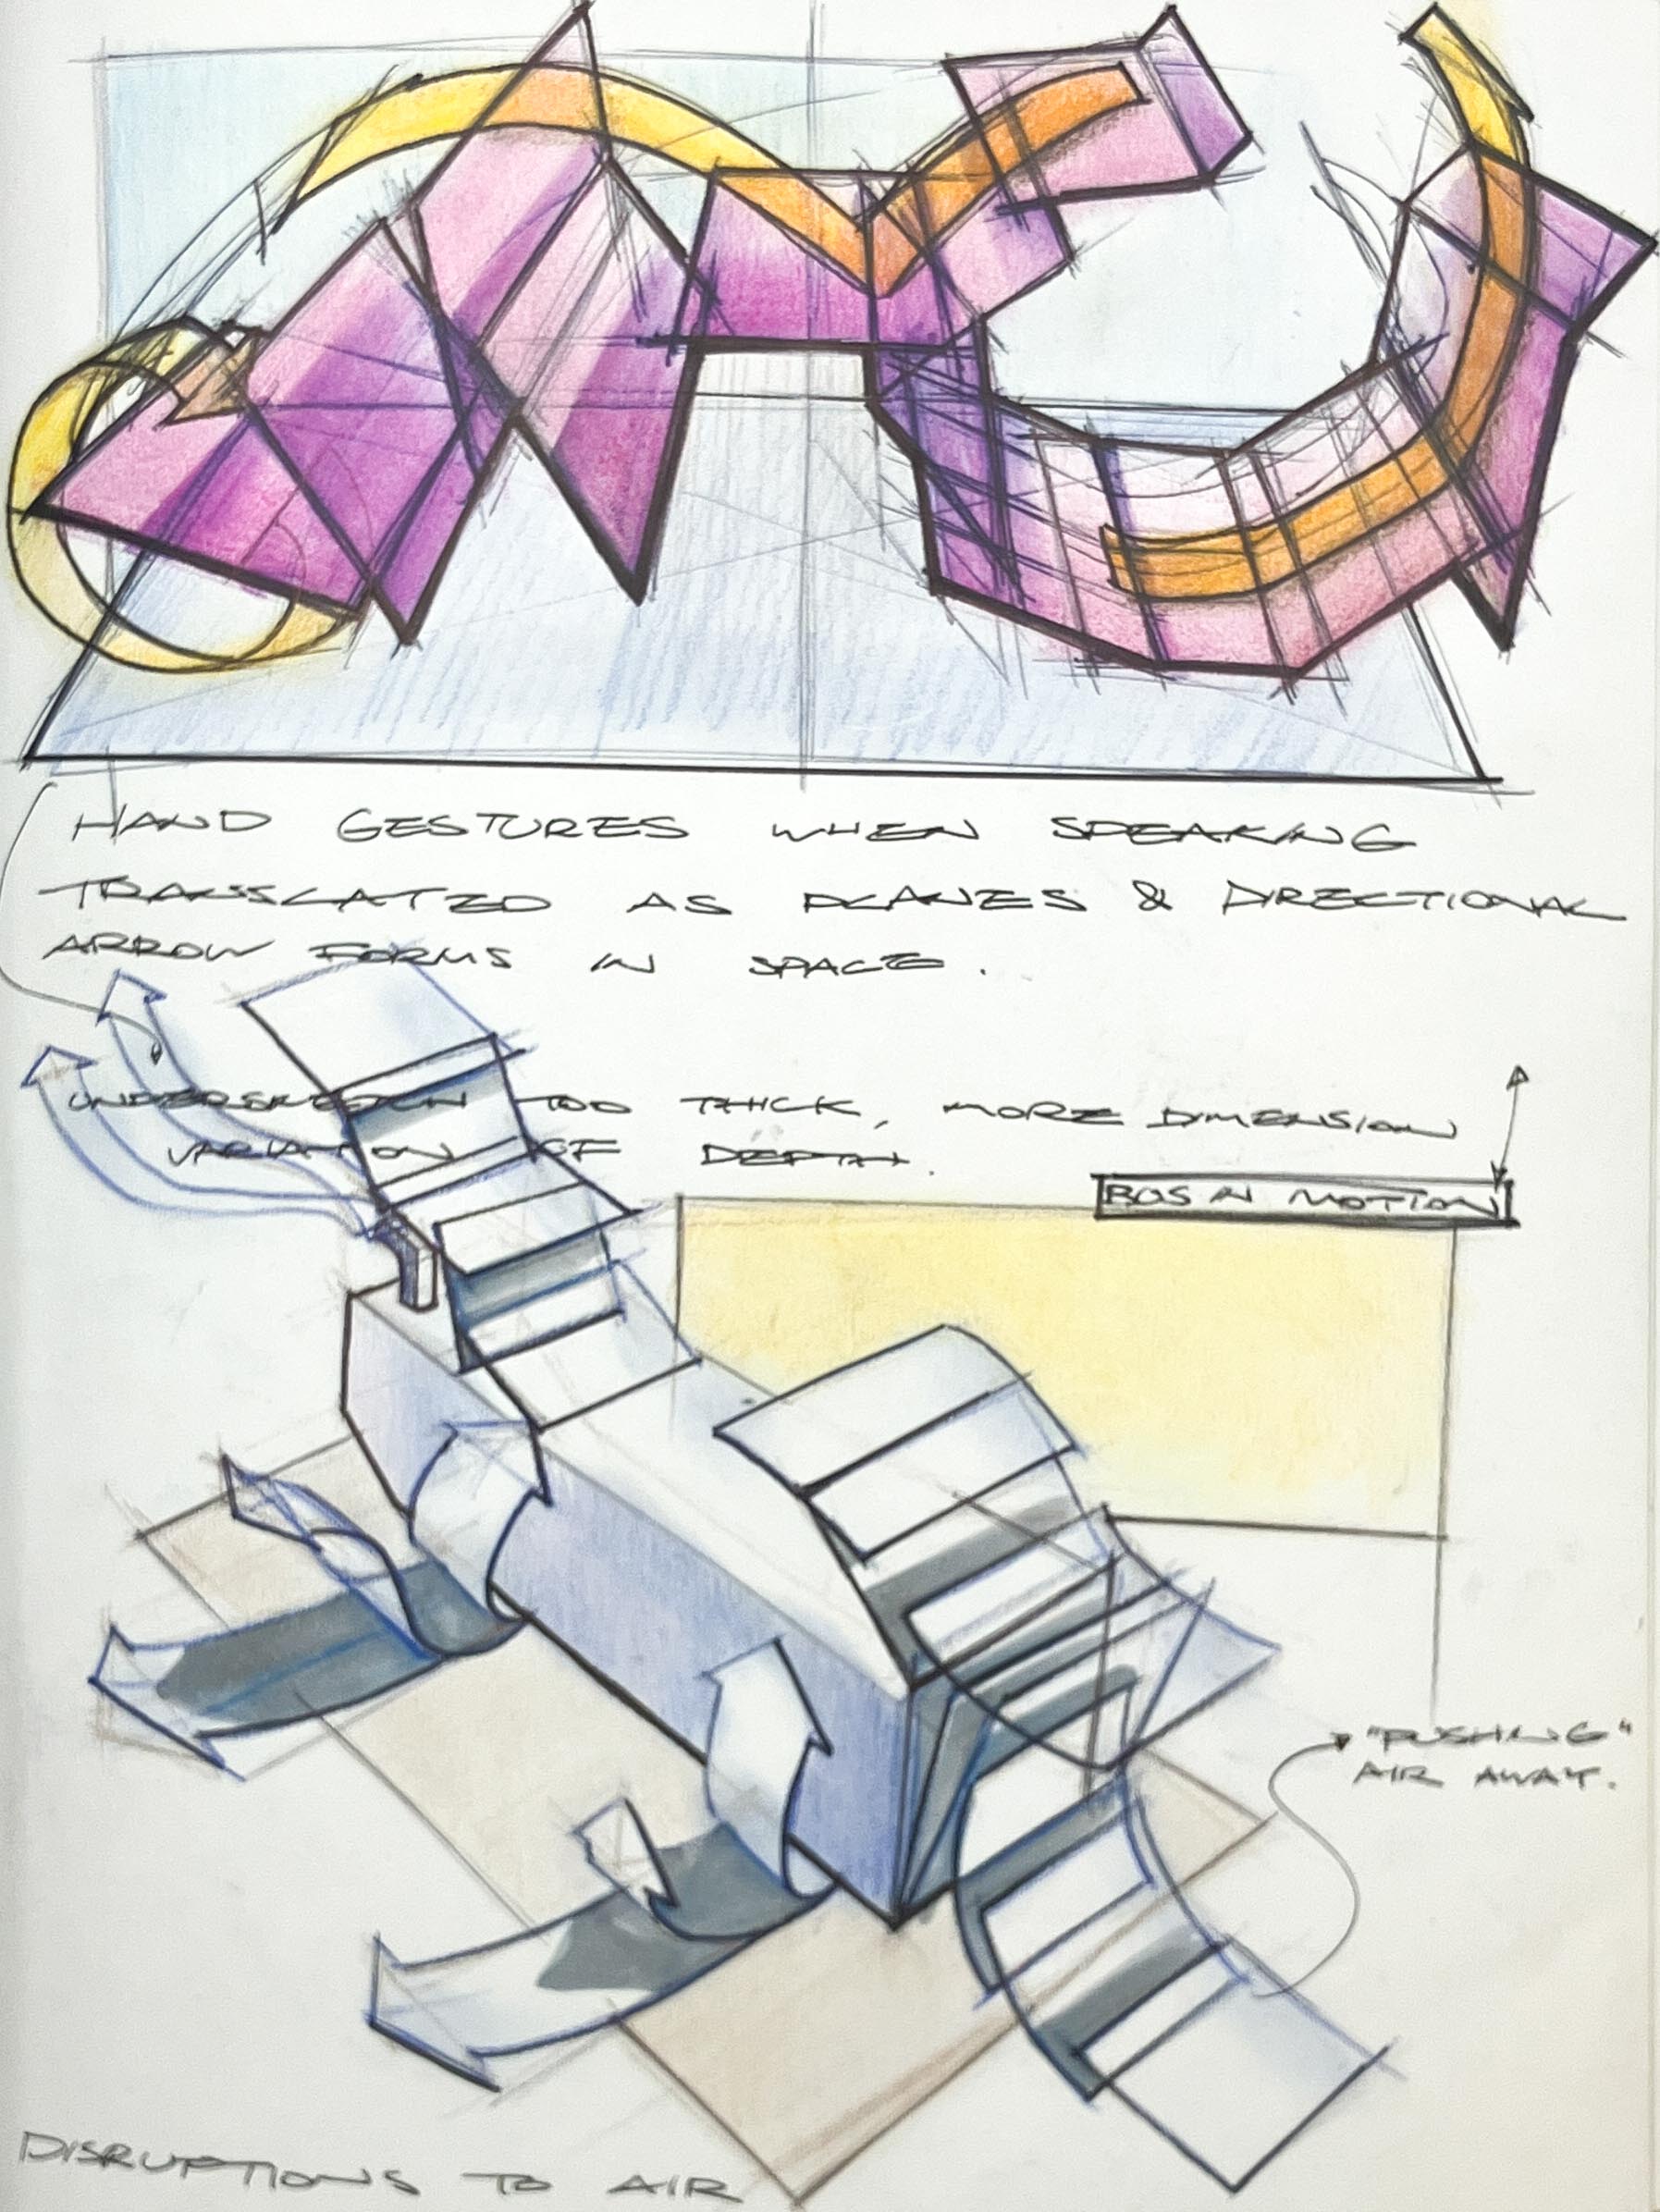 HAND GESTURES WHEN SPEAKING
TRANSLATED AS PLANES & DIRECTIONAL
ARROW FORMS IN SPACE.
UNDERSKETCH TOO THICK, MORE DIMENSION
VARIATION OF DEPTH.
BUS IN MOTION
"PUSHING"
AIR AWAY.
DISRUPTIONS TO AIR